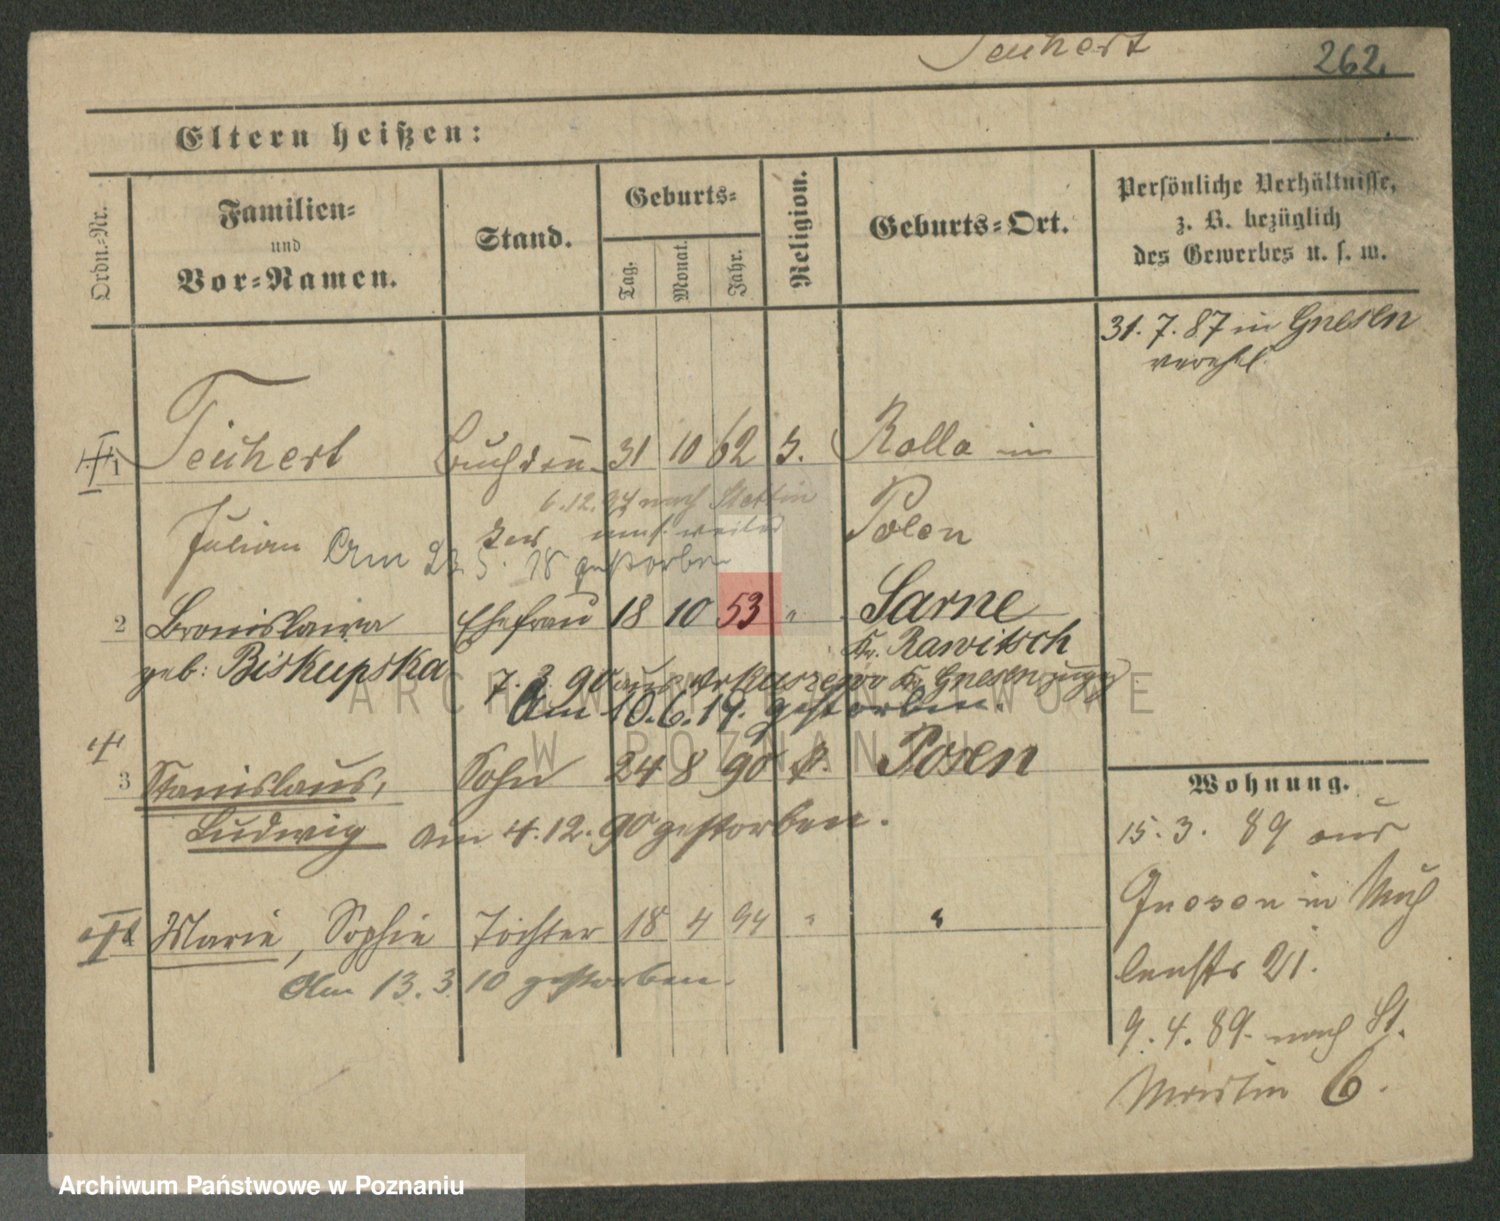 Teuhert 262.
Eltern heißen:
Ordn.-Nr.
Familien-
und
Vor-Namen.
Stand.
Geburts-
Tag.
Monat.
Jahr.
Religion.
Geburts-Ort.
Persönliche Verhältnisse,
z. B. bezüglich
des Gewerbes u. s. w.
31. 7. 87 in Gnesen
verehl.
1 Teuhert 31 10 62 Kolla in
6.12.94 nach Stettin
Julian Polen
Am 23. 5. 18 gestorben
2 Bronislawa Ehefrau 18 10 53 " Sarne
geb: Biskupska Kr. Rawitsch
7. 3. 90 aus Kr. Gnesen
Am 10. 6. 19. gestorben.
3 Stanislaus, Sohn 24 8 90 k. Posen
Ludwig am 4. 12. 90 gestorben.
Marie, Sophie Tochter 18 4 94 " "
Am 13. 3. 10 gestorben.
Wohnung.
15. 3. 89 aus
Gnesen in Müh
lenstr 21.
9. 4. 89. nach St.
Martin 6.
ARCHIWUM PAŃSTWOWE
W POZNANIU
Archiwum Państwowe w Poznaniu